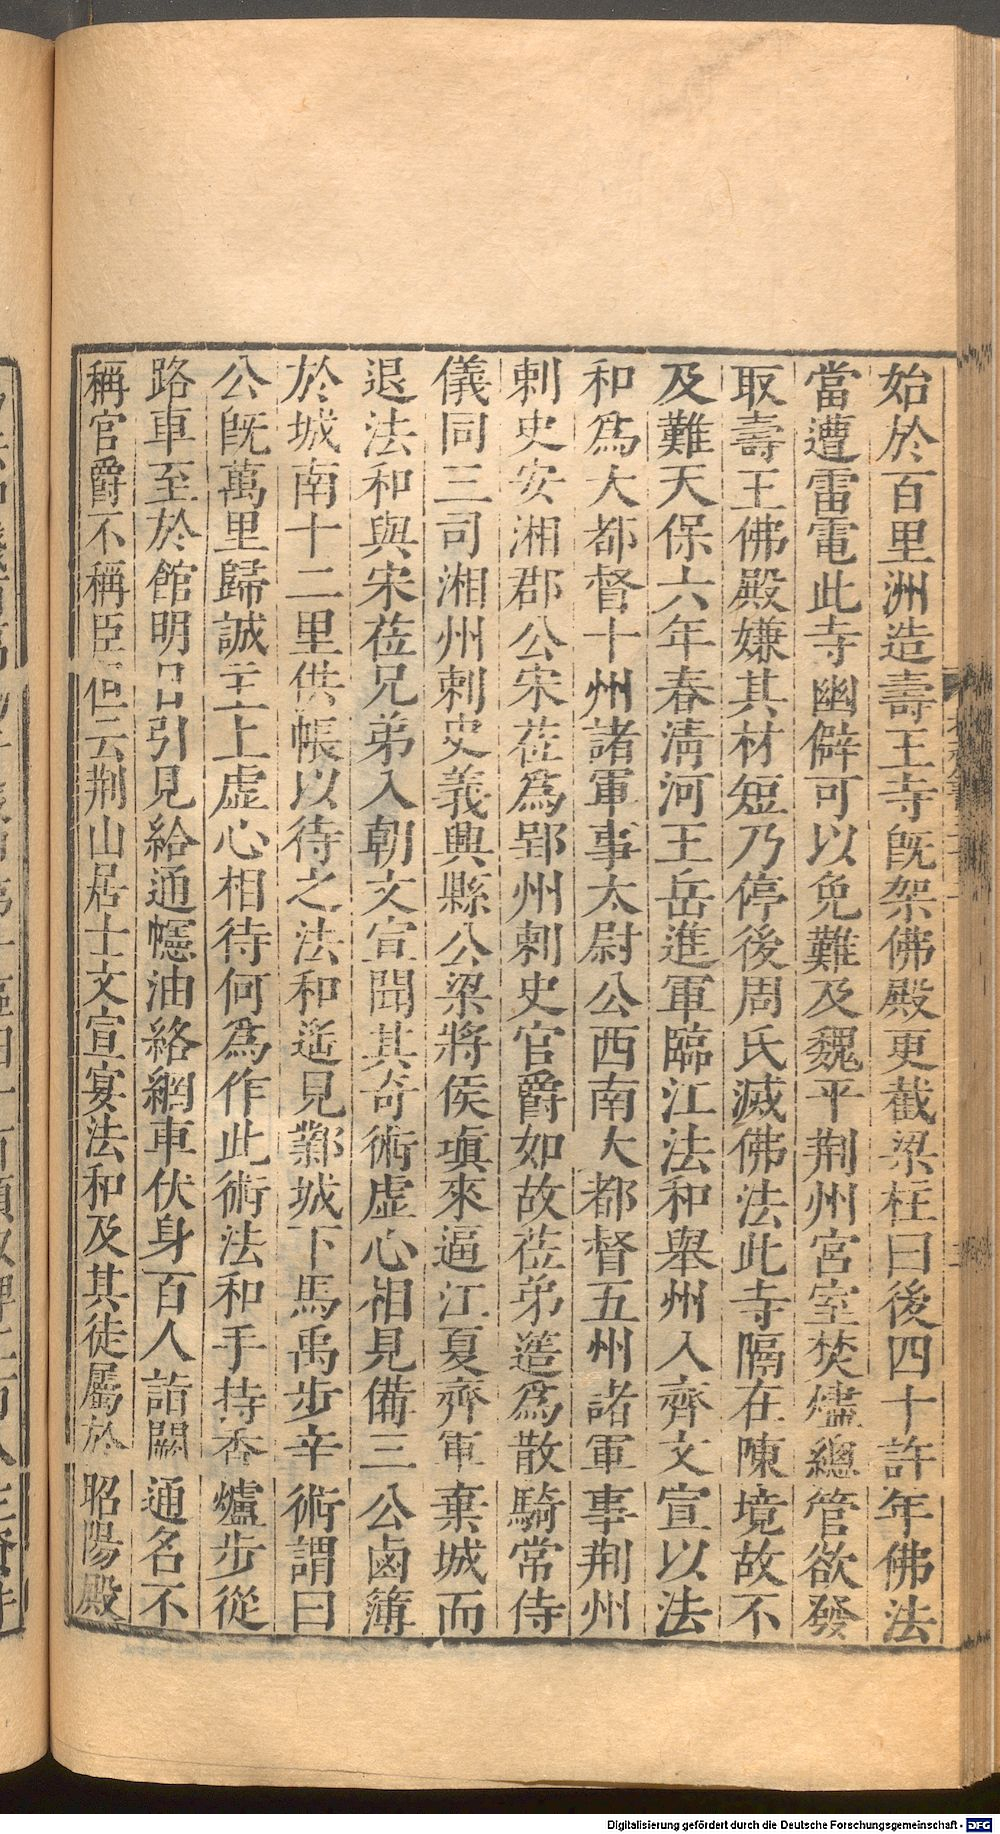 始於百里洲造壽王寺旣架佛殿更截梁柱曰後四十許年佛法
當遭雷電此寺幽僻可以免難及魏平荆州宮室焚燼總管欲發
取壽王佛殿嫌其材短乃停後周氏滅佛法此寺隔在陳境故不
及難天保六年春淸河王岳進軍臨江法和舉州入齊文宣以法
和爲大都督十州諸軍事太尉公西南大都督五州諸軍事荆州
刺史安湘郡公宋莅爲郢州刺史官爵如故莅弟簉爲散騎常侍
儀同三司湘州刺史義興縣公梁將侯瑱來逼江夏齊軍棄城而
退法和與宋莅兄弟入朝文宣聞其奇術虛心相見備三公鹵簿
於城南十二里供帳以待之法和遙見鄴城下馬禹步辛術謂曰
公旣萬里歸誠主上虛心相待何爲作此術法和手持香爐步從
路車至於館明日引見給通幰油絡網車伏身百人詣闕通名不
稱官爵不稱臣但云荆山居士文宣宴法和及其徒屬於昭陽殿
Digitalisierung gefördert durch die Deutsche Forschungsgemeinschaft - DFG